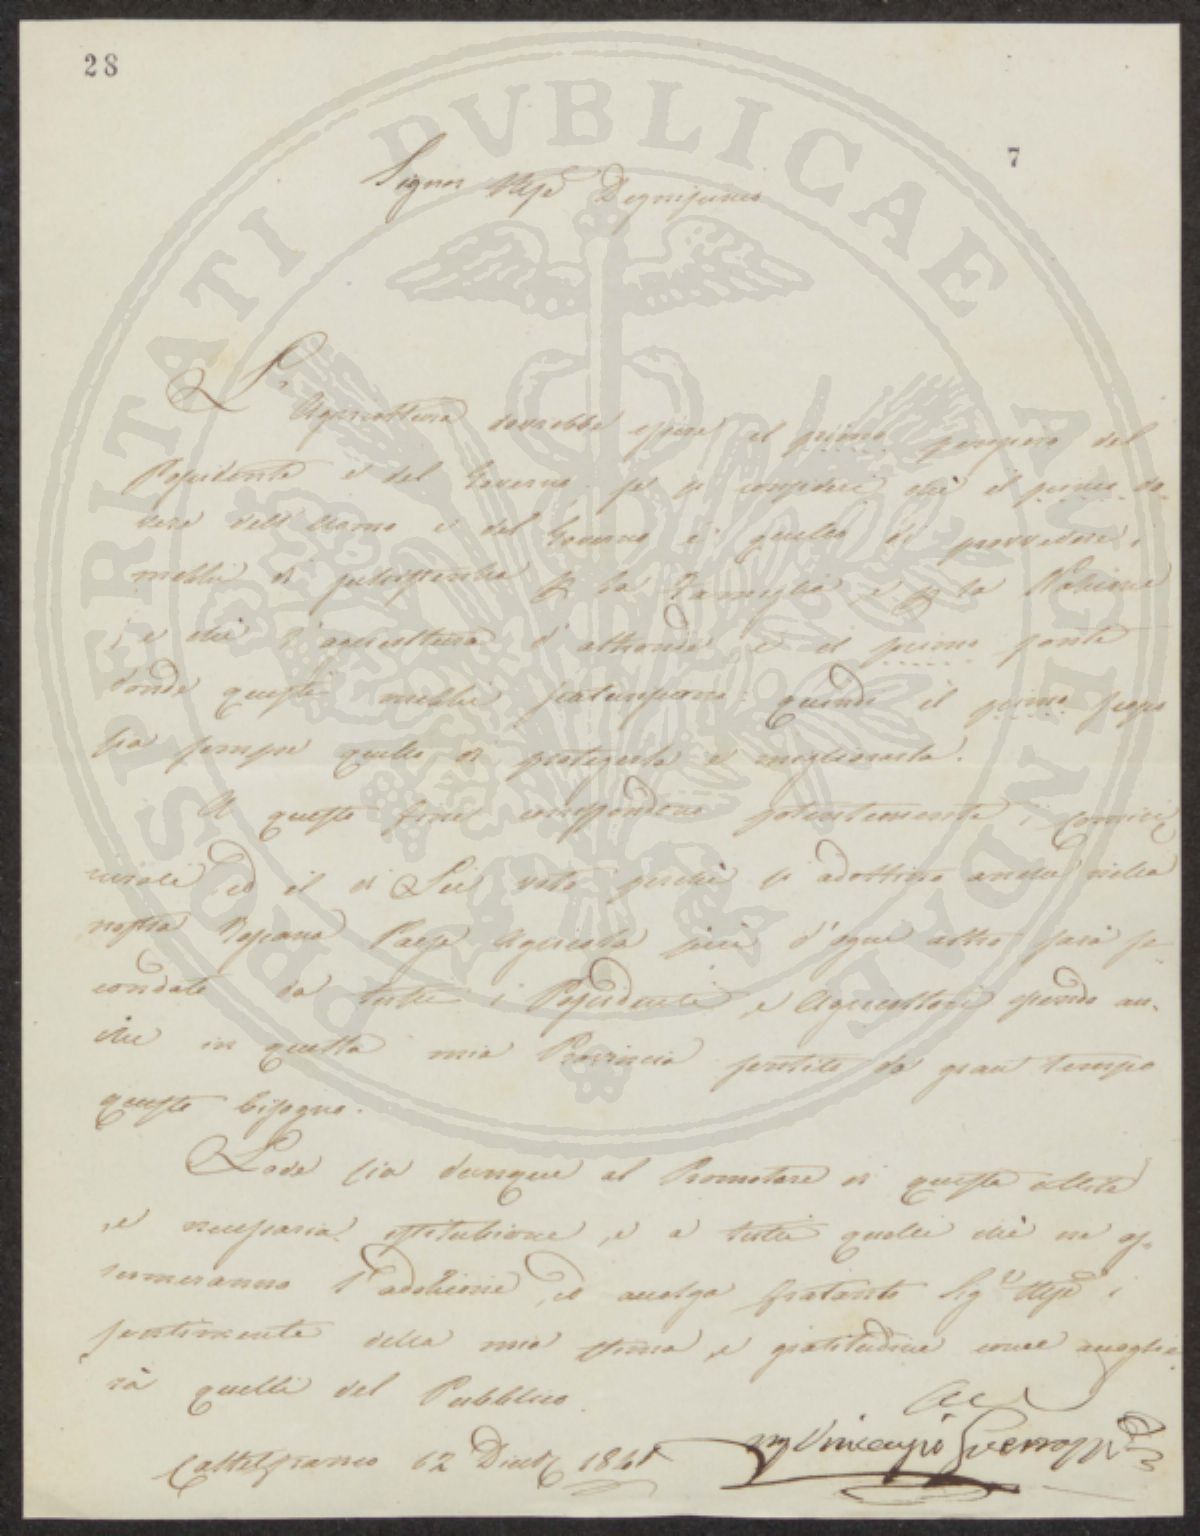 28
7
PROSPERITATI PVBLICAE AVGENDAE
Signor Mse Degnissimo
L'Agricoltura dovrebbe essere il primo pensiero del
Possidente e del Governo, se si consideri che il primo do-
vere dell'Uomo e del Governo è quello di provvedere i
mezzi di sussistenza per la Famiglia, e per la Nazione
; e che l'agricoltura d'altronde è il primo fonte
donde questi mezzi scaturiscono: quindi il primo scopo
sia sempre quello di protegerla e migliorarla.
A questo fine corrispondono potentemente i Comizi
rurali ed il di Lei voto perchè si adottino anche nella
nostra Toscana Paese Agricola più d'ogni altro sarà se-
condato da tutti i Possidenti, e Agricoltori essendo an-
che in questa mia Provincia sentito da gran tempo
questo bisogno.
Lode sia dunque al Promotore di questa utile
, e necessaria istituzione, e a tutti quelli che ne as-
sumeranno l'adozione, ed accolga frattanto Sigr Mse i
sentimenti della mia stima, e gratitudine come accoglie
rà quelli del Pubblico.
Castelfranco 12 Dicbre 1841
Vincenzio Guerrazzi